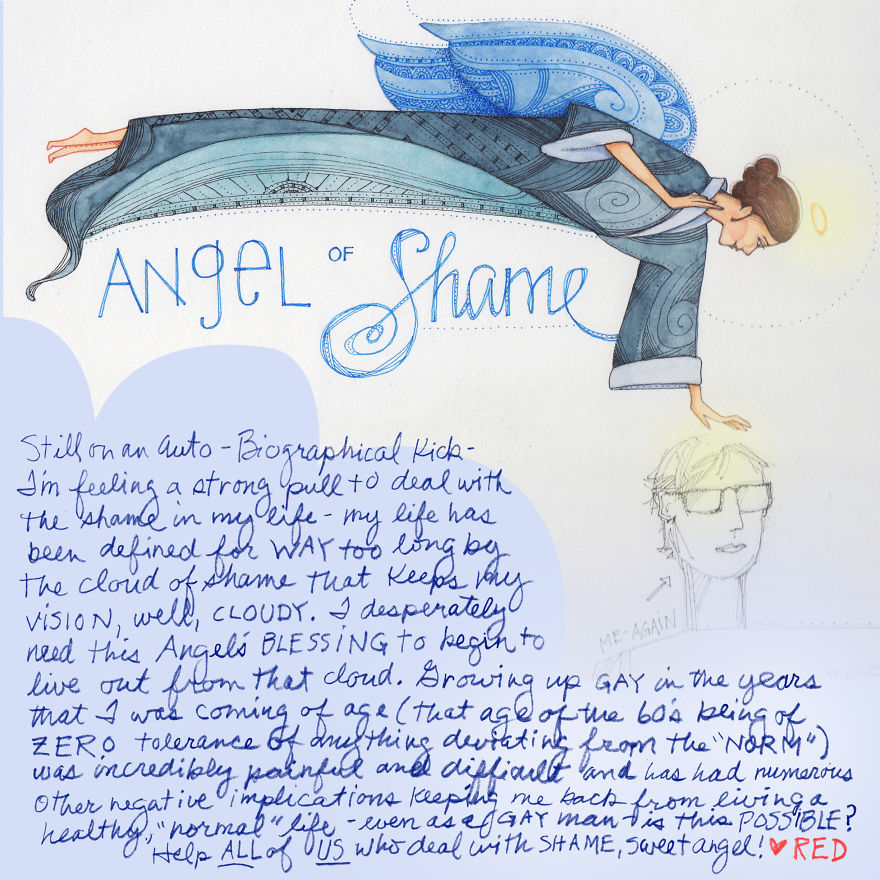 ANgeL OF Shame
Still on an Auto-Biographical Kick-
I'm feeling a strong pull to deal with
the shame in my life - my life has
been defined for WAY too long by
the cloud of shame that keeps my
VISION, well, CLOUDY. I desperately
need this Angel's BLESSING to begin to
live out from that cloud. Growing up GAY in the years
that I was coming of age (that age of the 60's being of
ZERO tolerance of anything deviating from the "NORM")
was incredibly painful and difficult and has had numerous
other negative implications keeping me back from living a
healthy, "normal" life - even as a GAY man - is this POSSIBLE?
Help ALL of US who deal with SHAME, sweet angel! ♥ RED
ME-AGAIN